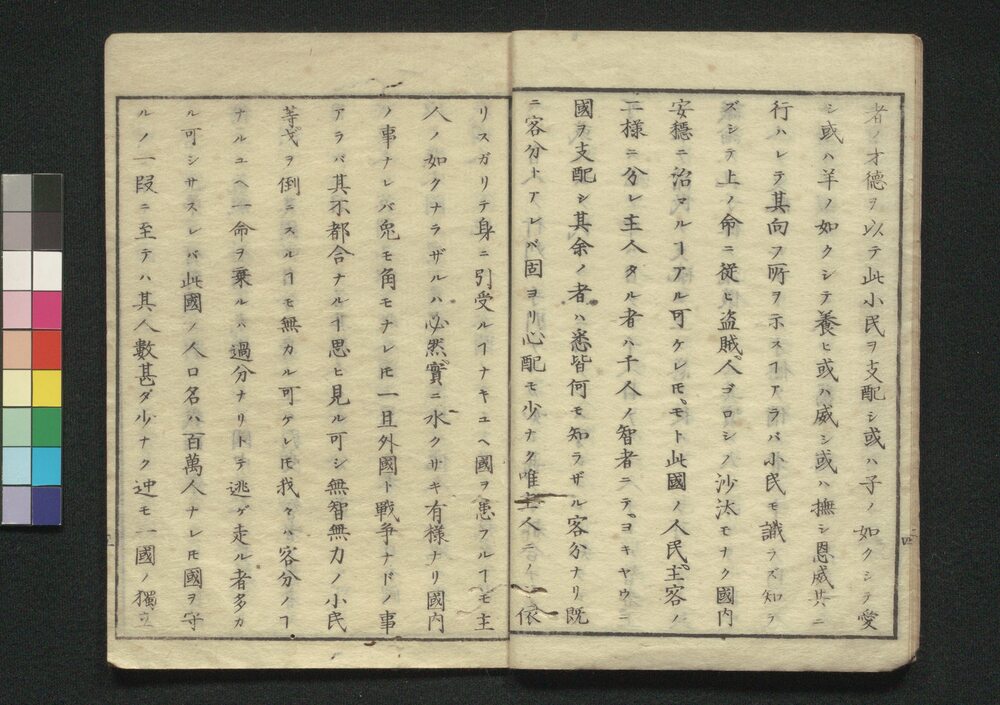 者ノ才德ヲ以テ此小民ヲ支配シ或ハ子ノ如クシテ愛
シ或ハ羊ノ如クシテ養ヒ或ハ威シ或ハ撫シ恩威共ニ
行ハレテ其向フ所ヲ示スヿアラバ小民モ識ラズ知ラ
ズシテ上ノ命ニ從ヒ盜賊、人ゴロシノ沙汰モナク國内
安穩ニ治マルヿアル可ケレ𪜈、モト此國ノ人民、主客ノ
二樣ニ分レ主人タル者ハ千人ノ智者ニテ、ヨキヤウニ
國ヲ支配シ其余ノ者ハ悉皆何モ知ラザル客分ナリ既
ニ客分トアレバ固ヨリ心配モ少ナク唯主人ニノミ依
リスガリテ身ニ引受ルヿナキユヘ國ヲ患フルヿモ主
人ノ如クナラザルハ必然實ニ水クサキ有樣ナリ國内
ノ事ナレバ兎モ角モナレ𪜈一旦外國ト戰争ナドノ事
アラバ其不都合ナルヿ思ヒ見ル可シ無智無力ノ小民
等戈ヲ倒ニスルヿモ無カル可ケレ𪜈我々ハ客分ノヿ
ナルユヘ一命ヲ棄ルハ過分ナリトテ逃ゲ走ル者多カ
ル可シサスレバ此國ノ人口名ハ百萬人ナレ𪜈國ヲ守
ルノ一段ニ至テハ其人數甚ダ少ナク迚モ一國ノ獨立